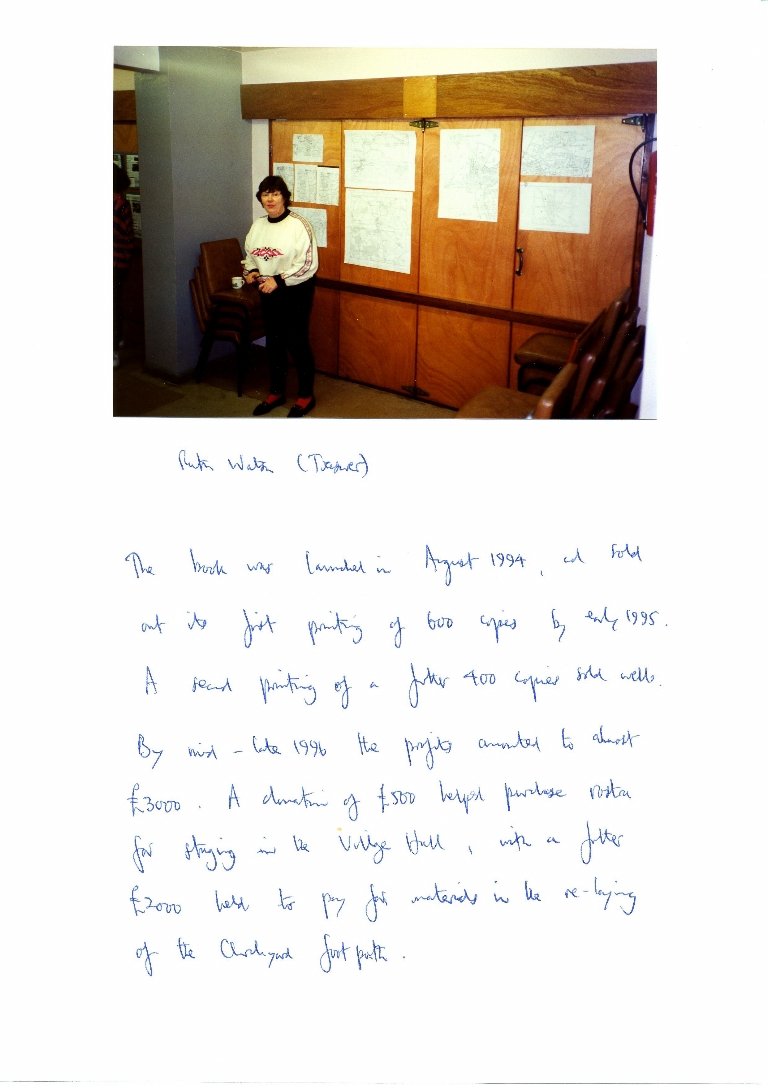 Ruth Watson (Treasurer)
The book was launched in August 1994, and sold
out its first printing of 600 copies by early 1995.
A second printing of a further 400 copies sold well.
By mid-late 1996 the profits amounted to almost
£3000. A donation of £500 helped purchase rostra
for staging in the Village Hall, with a further
£2000 held to pay for materials in the re-laying
of the Churchyard footpath.